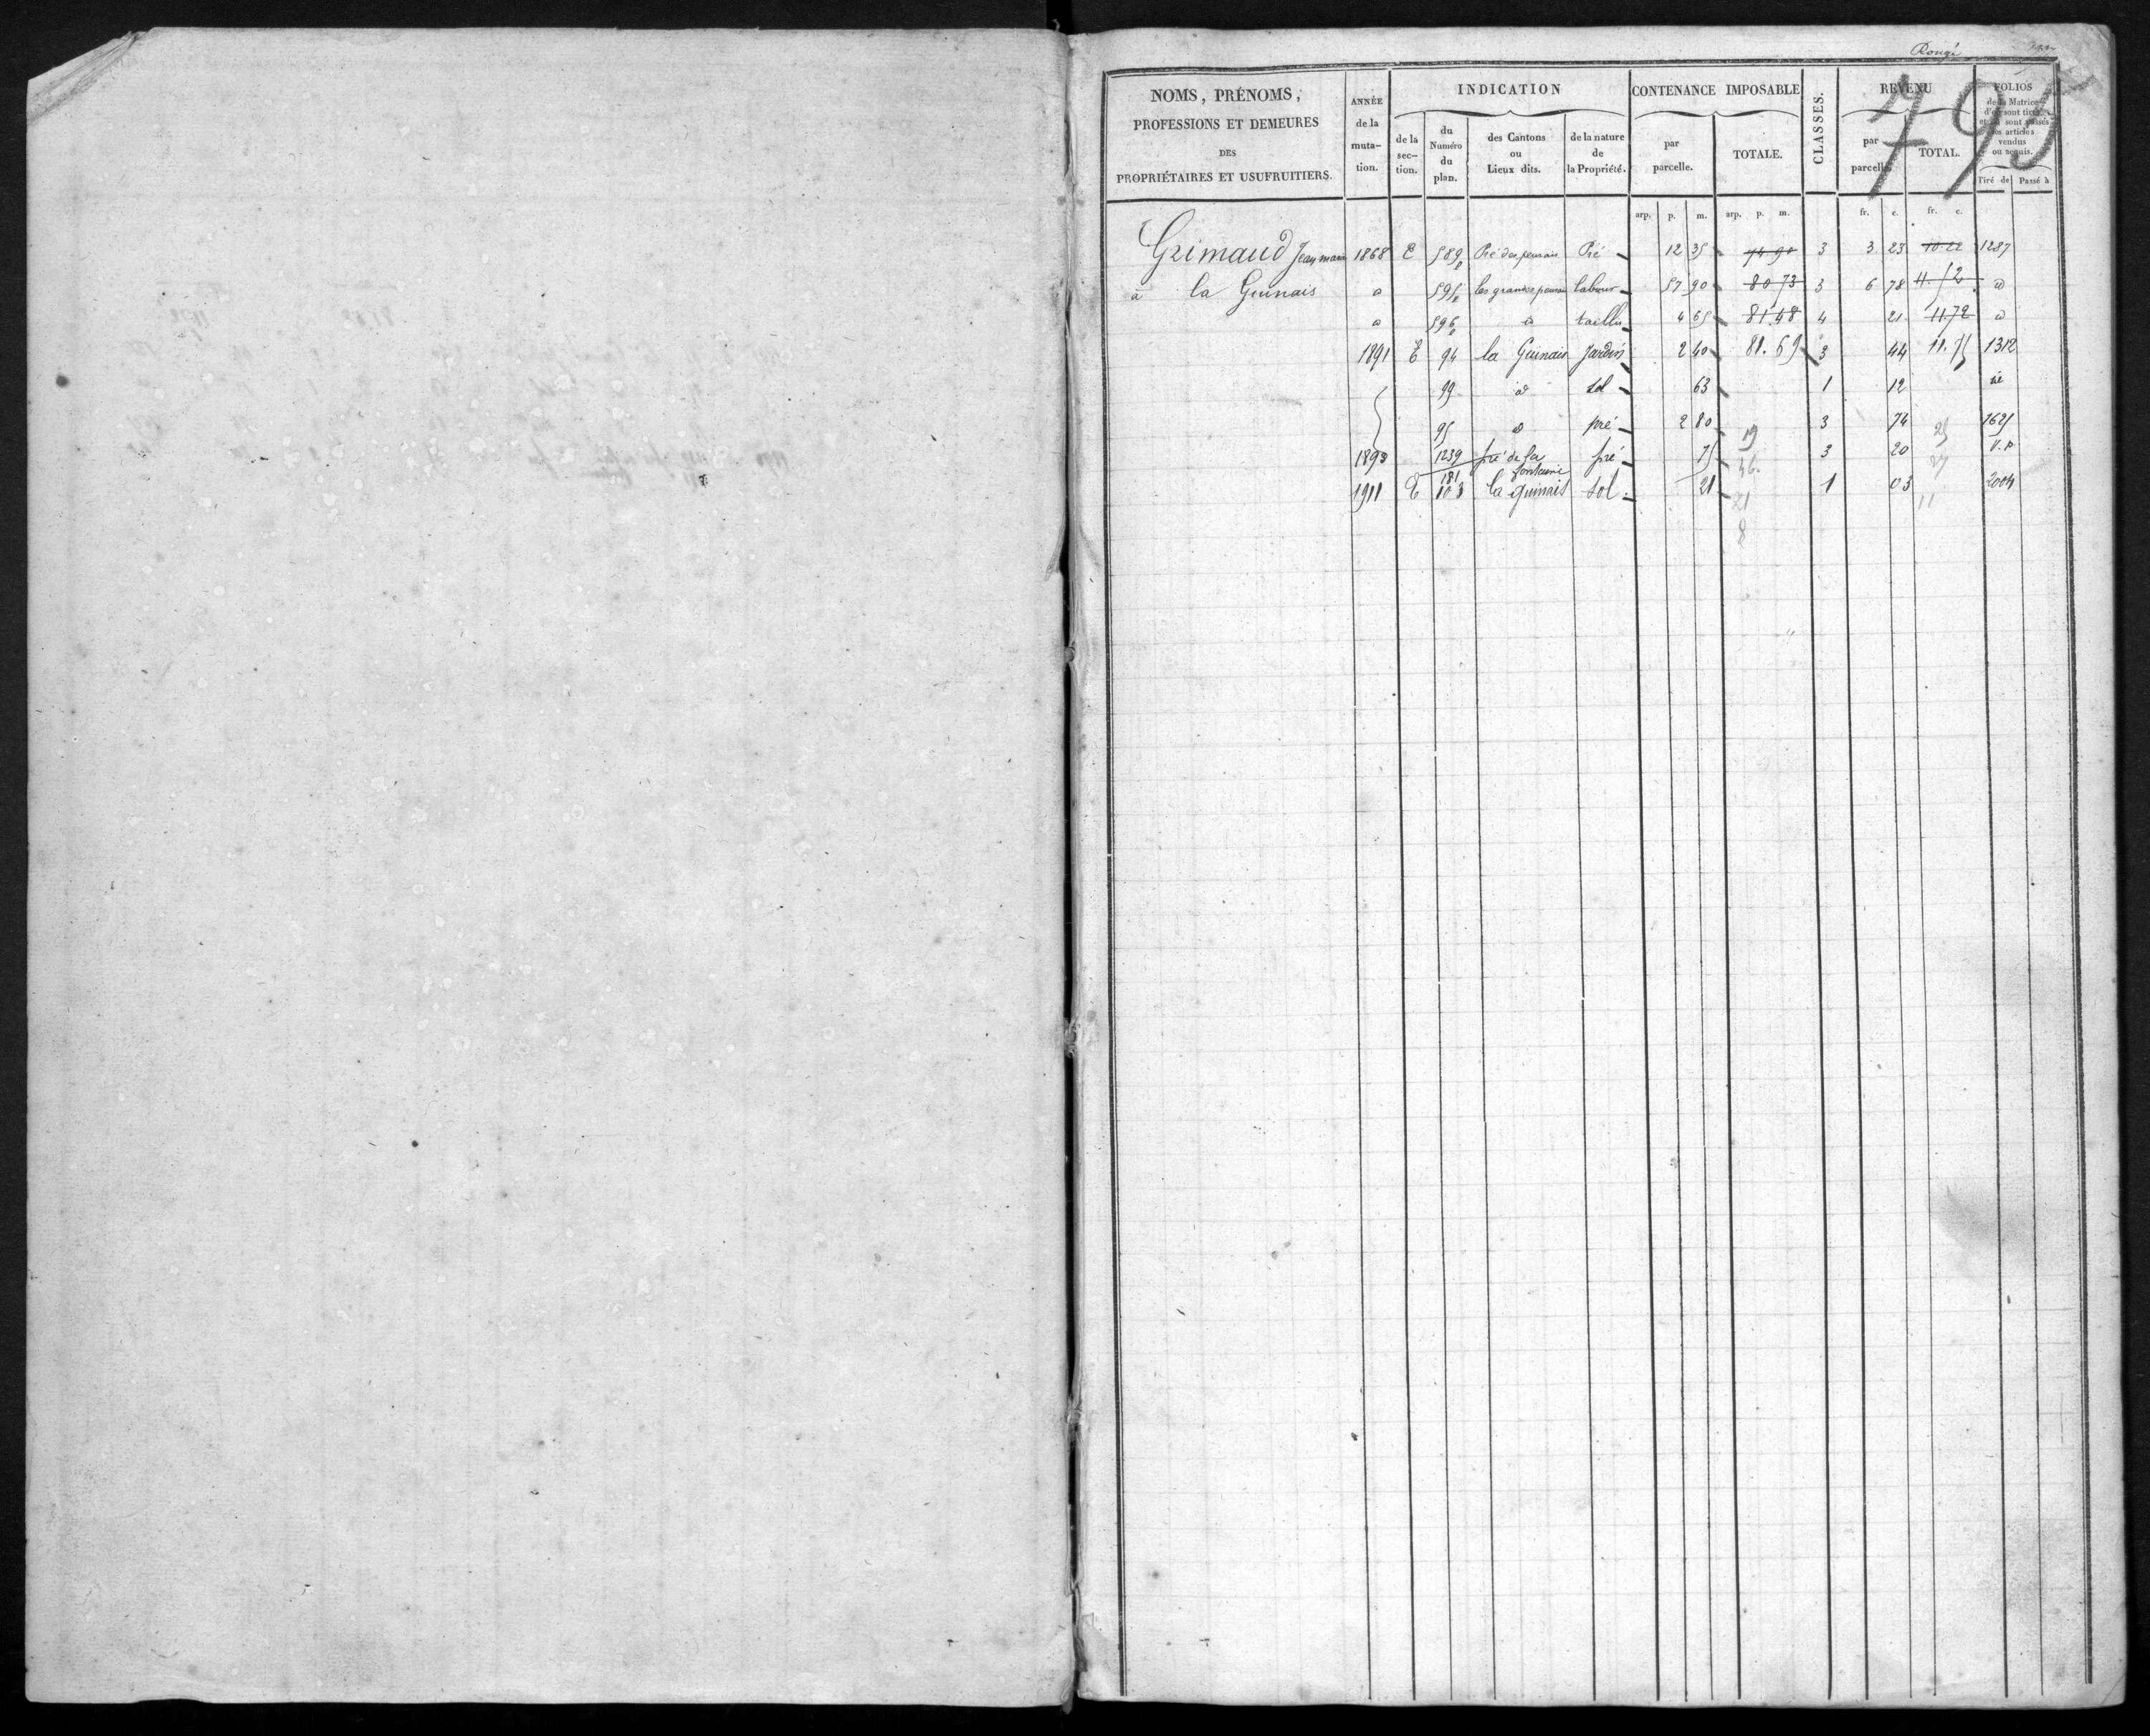 Rougé
795
NOMS, PRÉNOMS,
PROFESSIONS ET DEMEURES
DES
PROPRIÉTAIRES ET USUFRUITIERS.
ANNÉE
de la
muta-
tion.
INDICATION
de la
sec-
tion.
du
Numéro
du
plan.
des Cantons
ou
Lieux dits.
de la nature
de
la Propriété.
CONTENANCE IMPOSABLE
par
parcelle.
TOTALE.
CLASSES.
REVENU
par
parcelle
TOTAL.
FOLIOS
de la Matrice
d'où sont tirés
et où sont passés
les articles
vendus
ou acquis.
Tiré de Passé à
arp. p. m. arp. p. m. fr. c. fr. c.
Grimaud Jean marie 1868 E 589p Pré des perrais Pré 12 35 74 90 3 3 23 10.22 1287
à la Guinais d 595p les grandes taillis labour 57 90 80 73 3 6 78 11.52 d
d 596p d taillis 4 65 81 48 4 21 11.72 d
1891 E 94 la Guinais Jardin 2 40 81.69 3 44 11.75 1312
99 d sol 63 1 12
95 d pré 2 80 3 74 1625
1893 1239 pré de la fontaine pré 75 3 20 V.P
1911 E 181 103 la guinais sol 21 1 03 2004
19 25
46. 27
21 11
8